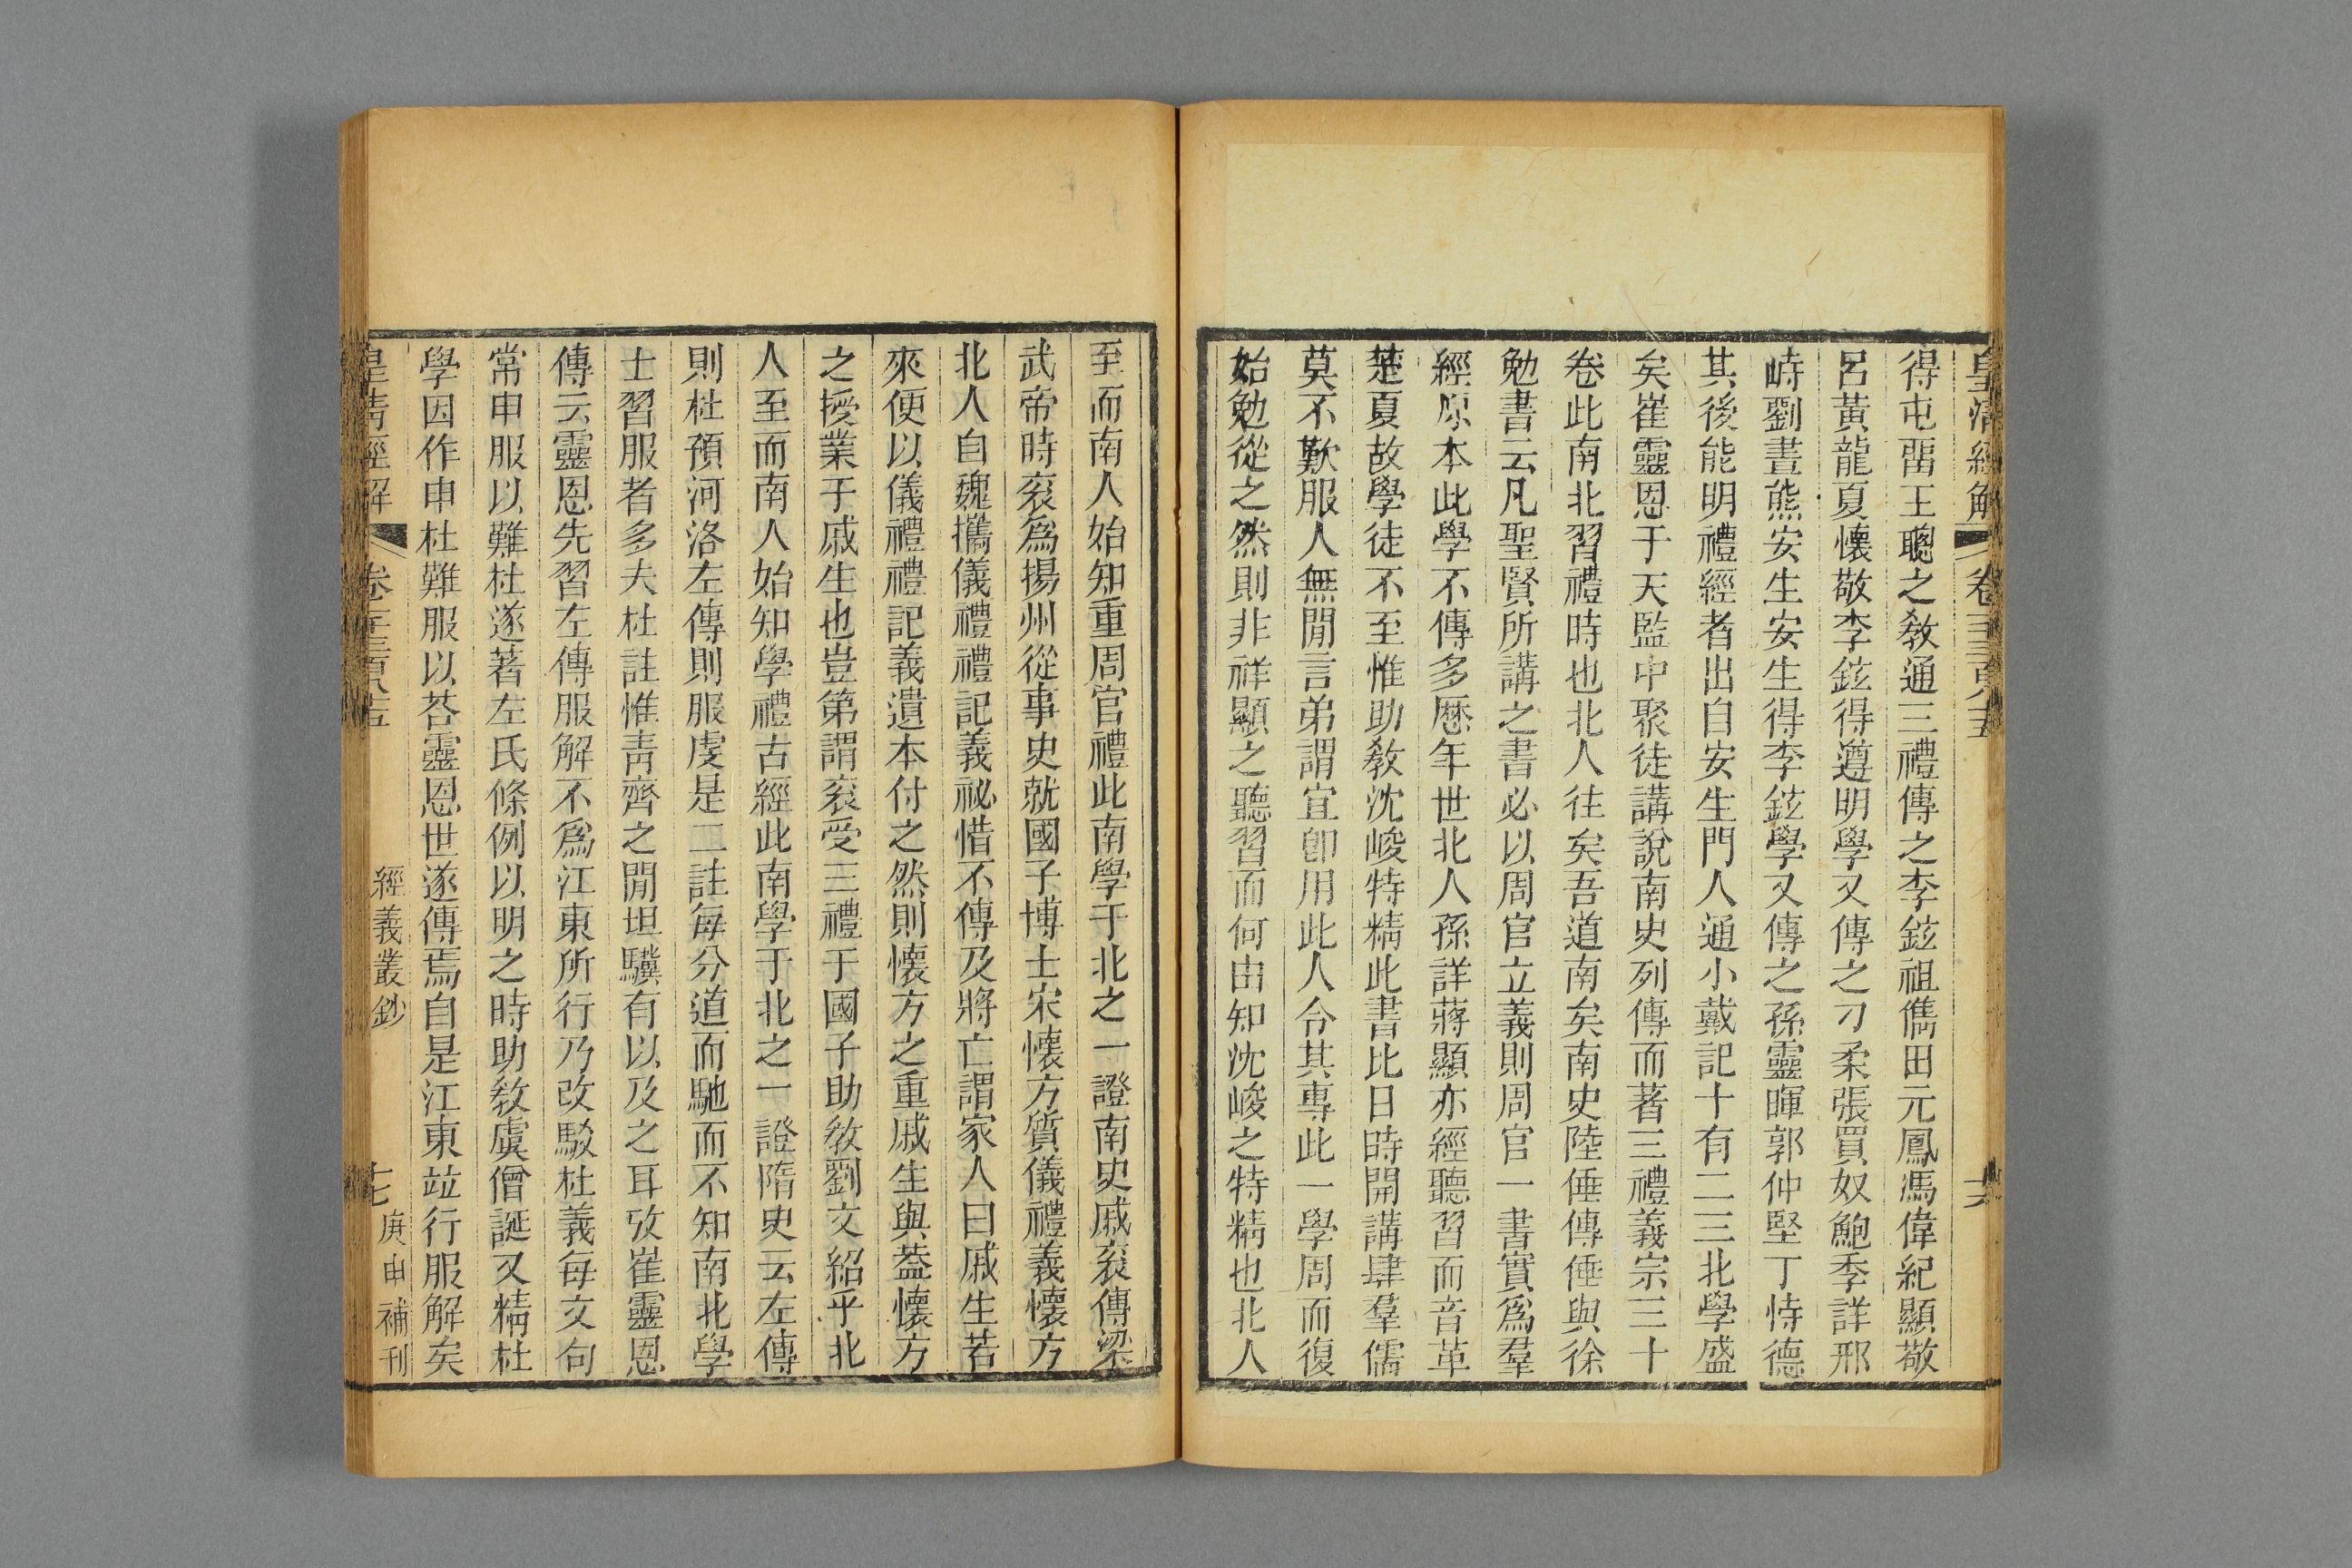 皇清經解
卷一千三百八十五
十六
得屯畱王聰之敎通三禮傳之李鉉祖儁田元鳳馮偉紀顯敬
呂黃龍夏懷敬李鉉得遵明學又傳之刁柔張買奴鮑季詳邢
峙劉晝熊安生安生得李鉉學又傳之孫靈暉郭仲堅丁恃德
其後能明禮經者出自安生門人通小戴記十有二三北學盛
矣崔靈恩于天監中聚徒講說南史列傳而著三禮義宗三十
卷此南北習禮時也北人往矣吾道南矣南史陸倕傳倕與徐
勉書云凡聖賢所講之書必以周官立義則周官一書實爲羣
經原本此學不傳多歷年世北人孫詳蔣顯亦經聽習而音革
楚夏故學徒不至惟助敎沈峻特精此書比日時開講肆羣儒
莫不歎服人無閒言弟謂宜卽用此人令其專此一學周而復
始勉從之然則非祥顯之聽習而何由知沈峻之特精也北人
至而南人始知重周官禮此南學于北之一證南史戚袞傳梁
武帝時袞爲揚州從事史就國子博士宋懷方質儀禮義懷方
北人自魏攜儀禮禮記義祕惜不傳及將亡謂家人曰戚生若
來便以儀禮禮記義遺本付之然則懷方之重戚生與葢懷方
之授業于戚生也豈第謂袞受三禮于國子助敎劉文紹乎北
人至而南人始知學禮古經此南學于北之一證隋史云左傳
則杜預河洛左傳則服虔是二註每分道而馳而不知南北學
士習服者多夫杜註惟靑齊之閒坦驥有以及之耳攷崔靈恩
傳云靈恩先習左傳服解不爲江東所行乃改駁杜義每文句
常申服以難杜遂著左氏條例以明之時助敎虞僧誕又精杜
學因作申杜難服以荅靈恩世遂傳焉自是江東竝行服解矣
皇清經解
卷一千三百八十五
經義叢鈔
十七
庚申補刊